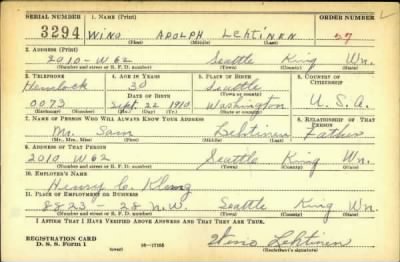 SERIAL NUMBER 1. NAME (Print) ORDER NUMBER
3294 WINO ADOLPH LEHTINEN 57
(First) (Middle) (Last)
2. ADDRESS (Print)
2010-W 62 Seattle King Wn.
(Number and street or R. F. D. number) (Town) (County) (State)
3. TELEPHONE 4. AGE IN YEARS 5. PLACE OF BIRTH 6. COUNTRY OF CITIZENSHIP
Hemlock 30 Seattle
DATE OF BIRTH (Town or county)
0073 Sept. 22 1910 Washington U.S.A.
(Exchange) (No.) (Mo.) (Day) (Yr.) (State or country)
7. NAME OF PERSON WHO WILL ALWAYS KNOW YOUR ADDRESS 8. RELATIONSHIP OF THAT PERSON
Mr. Sam Lehtinen Father
(Mr., Mrs., Miss) (First) (Middle) (Last)
9. ADDRESS OF THAT PERSON
2010 W 62 Seattle King Wn.
(Number and street or R. F. D. number) (Town) (County) (State)
10. EMPLOYER'S NAME
Henry C.
11. PLACE OF EMPLOYMENT OR BUSINESS
8823-28 N.W. Seattle King Wn.
(Number and street or R. F. D. number) (Town) (County) (State)
I AFFIRM THAT I HAVE VERIFIED ABOVE ANSWERS AND THAT THEY ARE TRUE.
REGISTRATION CARD
D. S. S. Form 1 (over) 16-17105 Wino Lehtinen
(Registrant's signature)